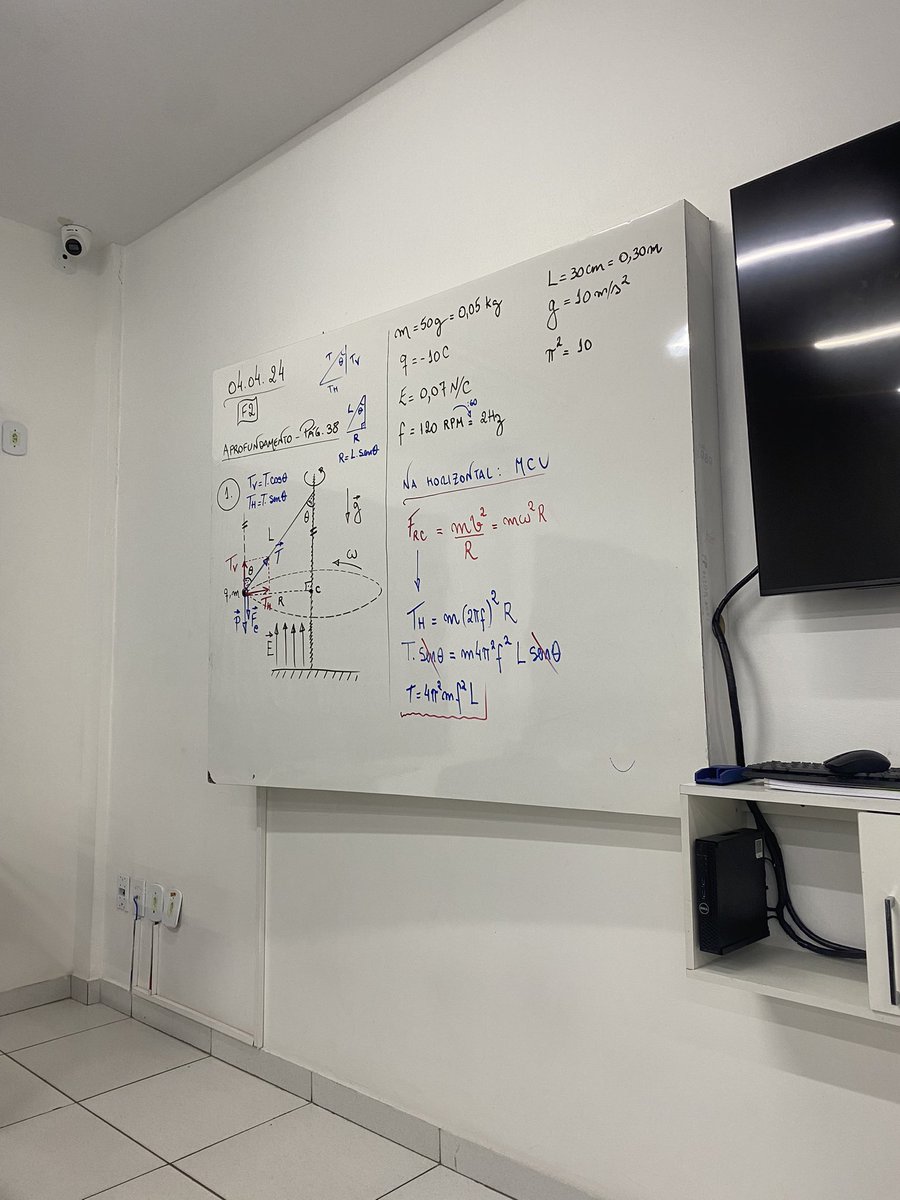 04.04.24
F2
APROFUNDAMENTO - PÁG. 38
T θ TV
TH
L θ
R
R = L.senθ
1.
TV = T.cosθ
TH = T.senθ
θ
g
L
T
ω
TV θ
q,m
TH R C
P Fe
E
m = 50g = 0,05 kg
q = -10C
E = 0,07 N/C
:60
f = 120 RPM = 2Hz
L = 30cm = 0,30m
g = 10m/s²
π² = 10
NA HORIZONTAL: MCU
FRC = mv²/R = mω²R
TH = m(2πf)² R
T.senθ = m4π²f² L senθ
T = 4π²mf²L